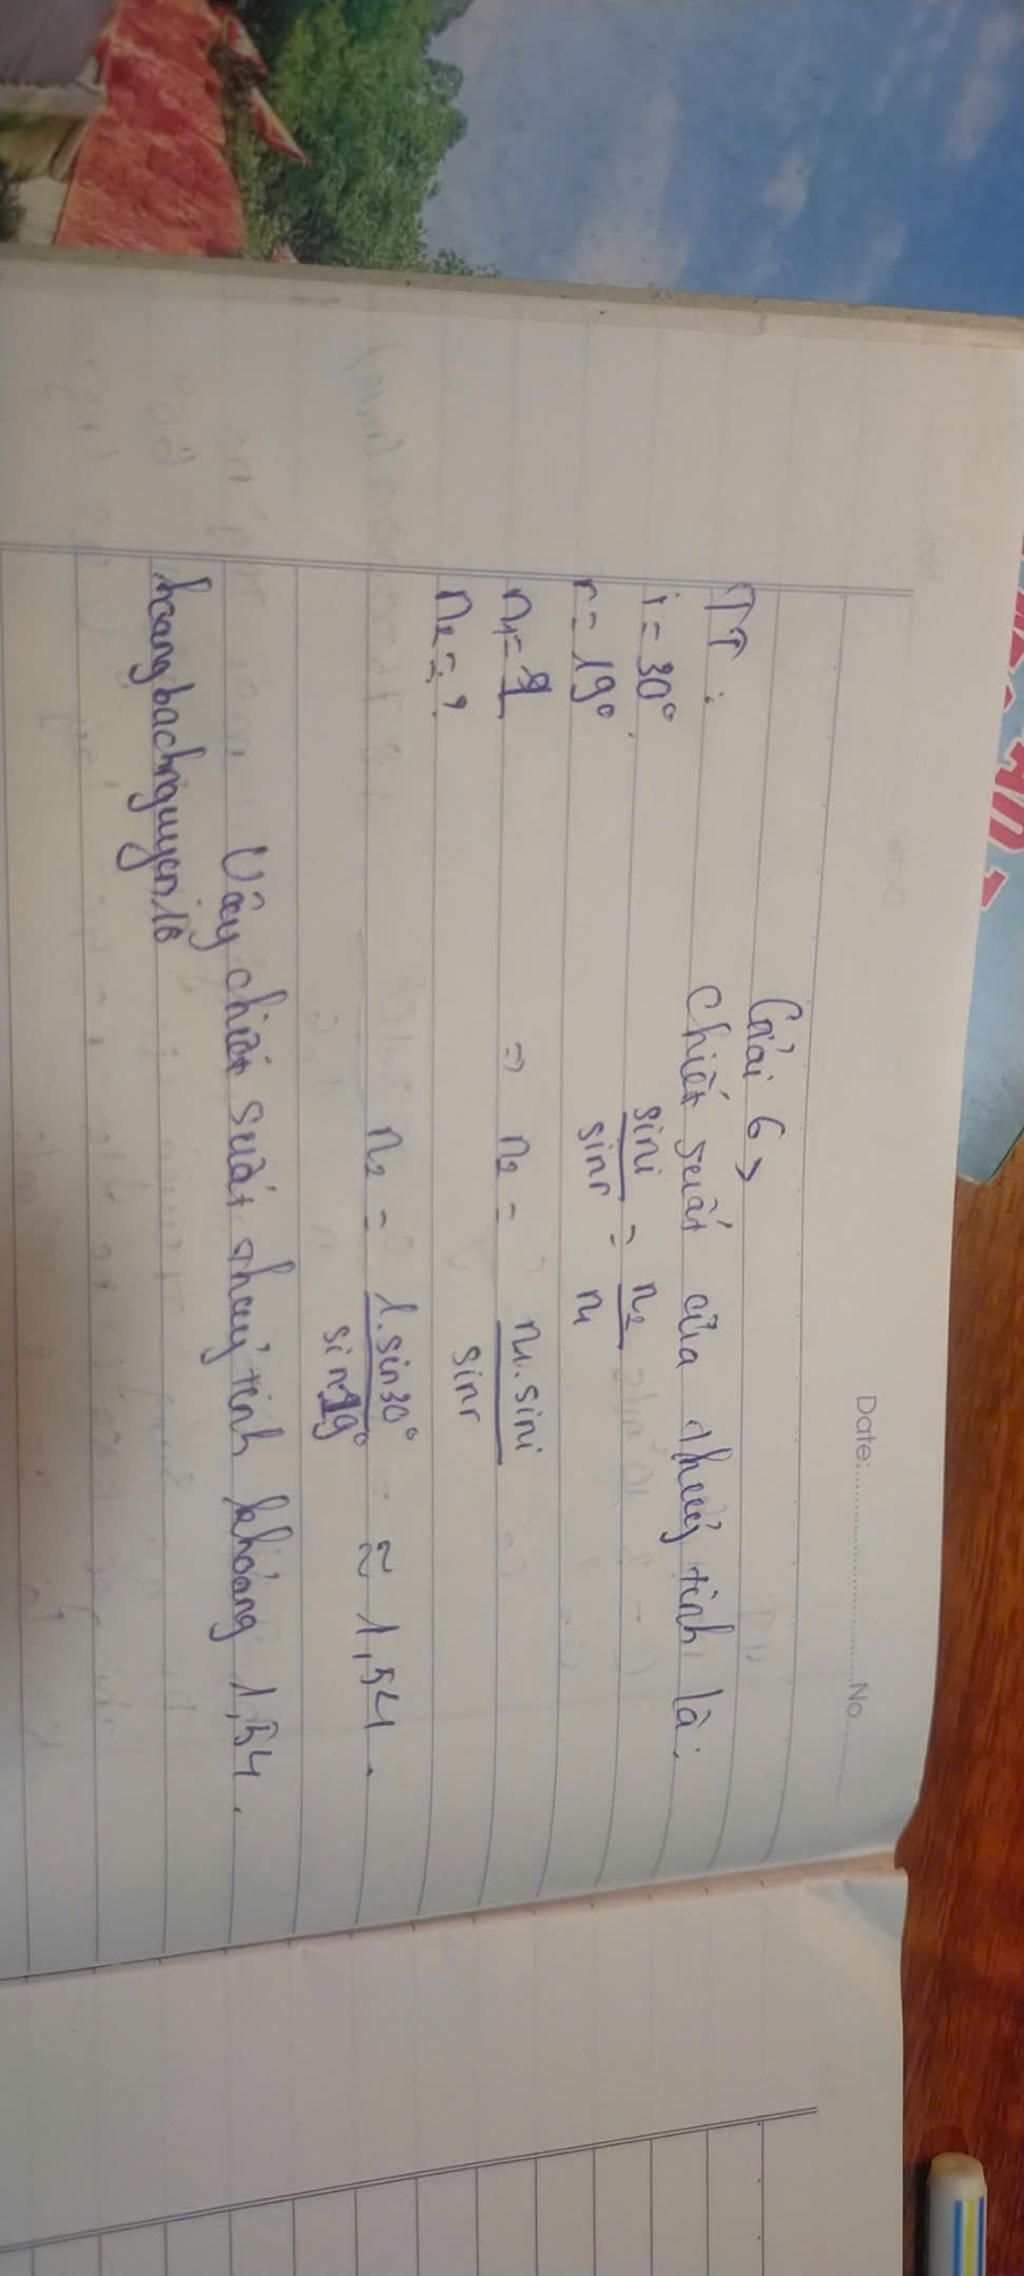 Date: No.
Giải 6>
TT:
Chiết suất của thuỷ tinh là:
i = 30°
sini/sinr = n2/n1
r = 19°
n1 = 1
=> n2 = n1.sini/sinr
n2 = ?
n2 = 1.sin30°/sin19° ≈ 1,54.
Vậy chiết suất thuỷ tinh khoảng 1,54.
hoangbachnguyen16